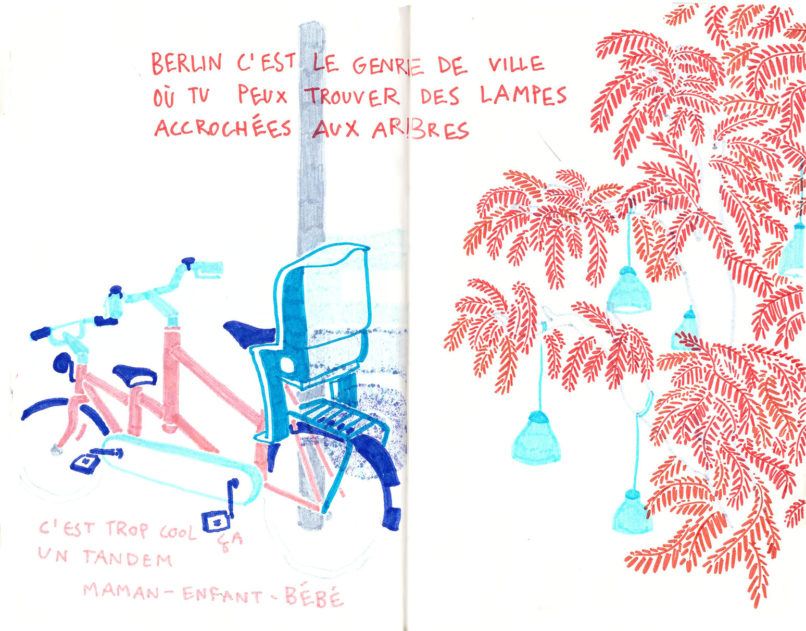 BERLIN C'EST LE GENRE DE VILLE
OÙ TU PEUX TROUVER DES LAMPES
ACCROCHÉES AUX ARBRES
C'EST TROP COOL ÇA
UN TANDEM
MAMAN-ENFANT-BÉBÉ